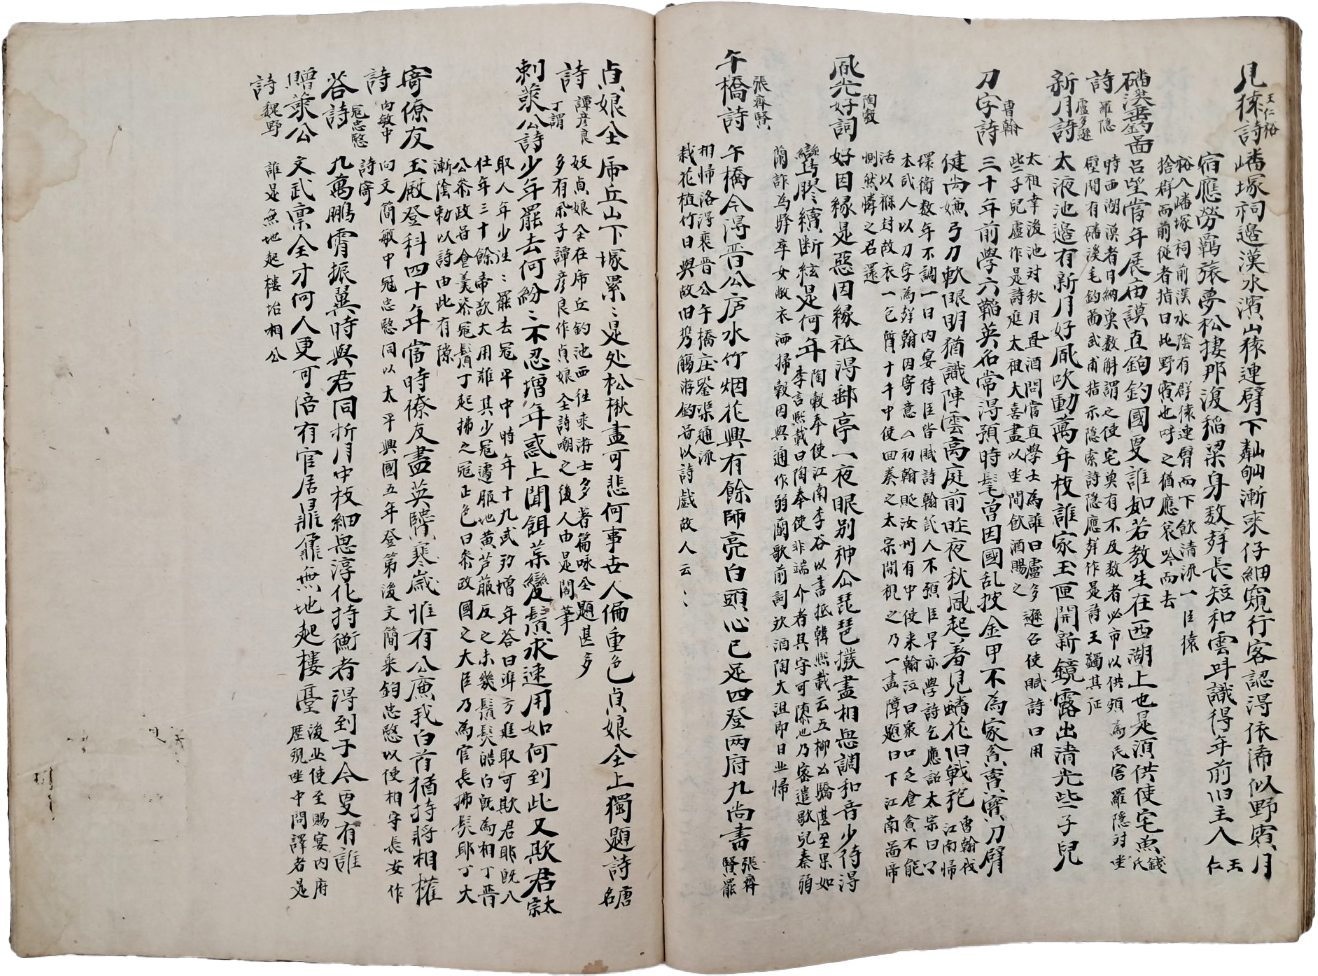 見猿詩 王仁裕 嶓塚祠邉漢水濱山猿連臂下嶙峋漸來仔細窺行客認得依俙似野賓月
宿應勞羈旅夢松棲那復稻粱身数聲長短和雲呌識得年前旧主人 王仁
裕入嶓塚祠前漢水陰有群猿連臂而下飲清流一巨猿
捨群而前從者指曰此野賓也呼之猶應哀吟而去
磻溪垂釣啚詩 羅隐 呂望當年展庙謨直鉤釣國更誰如若教生在西湖上也是湏供使宅魚 錢氏
時西湖漁者日納漁数斛謂之使宅奥有不及数者必市以供頗為民害羅隐對坐
壁間有磻溪毛釣啚武甫指示隐索詩隐應聲作是詩王蠲其征
新月詩 盧多遜 太液池邉有新月好凨吹動萬年枝誰家玉匣開新鏡露出清光些子兒
太祖幸後池对秋月置酒問當直學士為誰曰盧多遜召使賦詩曰用
些子兒盧作是詩進太祖大喜盡以坐間飲酒賜之
刀字詩 曹翰 三十年前學六韜英名常得預時髦曽因國乱披金甲不為家貧賣宝刀臂
健尚嫌弓刀軟眼明猶識陣雲高庭前昨夜秋凨起羞見蟠花旧戰袍 曹翰伐江南歸
環衛数年不調一日内宴侍臣皆賦詩翰訁人不預臣早亦學詩乞應詔太宗曰
本武人以刀字為韵翰因寄意 初翰貶汝州有中使来翰泣曰衆口乏食貧不能
活以猴封故衣一包質十千中使回奏之太宗開視之乃一畫障題曰下江南啚帰
惻然憐之召還
凨光好詞 陶穀 好因緣是惡因緣衹得郵亭一夜眼別神仚琵琶撥盡相思調知音少待得
鸞胶續断絃是何年 陶穀奉使江南李谷以書抵韓熙載云五柳公驕甚至果如
李言熙載曰陶奉使非端介者其守可隳也乃密遣歌兒秦弱
蘭詐為驛卒女敝衣洒掃穀因與通作弱蘭歌前詞玖酒陶大沮即日北帰
午橋詩 張齊賢 午橋今得晋公庐水竹烟花興有餘師亮白頭心已足四登两府九尚書 張齊賢罷
相帰洛得裴晋公午橋庄鑿渠通流
栽花植竹日與故旧携觴游釣昔以詩戯故人云
貞娘全詩 譚彦良 席丘山下塚累〻是处松楸盡可悲何事世人偏重色貞娘全上獨題詩 唐名
妓貞娘全在席丘釣池西往来游士多著篇咏全題甚多
多有举子譚彦良作貞娘全詩嘲之後人由是閣筆
剌菜公詩 丁謂 少年罷去何紛〻不忍增年惑上聞餌菜變鬚求速用如何到此又欺君 太宗
取人年少注〻罷去冦平中時年十九或勸增年荅曰準方進取可欺君耶既八
仕年三十餘帝欲大用难其少冦遽服地黄芦菔反之未幾鬚髮皓白既為相丁晋
公叅政昔會羙叅冦鬚丁起拂之冦正色曰叅政國之大臣乃為官長拂髮耶丁大
漸陰勅以詩由此有隙
寄僚友詩 向敏中 玉殿登科四十年當時僚友盡英賢寒歲惟有公廉我白首猶持將相權
向文簡敏中冦忠愍同以太平興國五年登第後文簡秉鈞忠愍以使相守長安作
詩寄
答詩 冦忠愍 九萬鵬霄振翼時與君同折月中枝細思淳化持衡者得到于今更有誰
贈萊公詩 魏野 文武禀全才何人更可倍有官居鼎鼐無地起樓䑓 後北使至賜宴内府
歴視坐中問譯者㝎
誰是無地起樓㙜相公